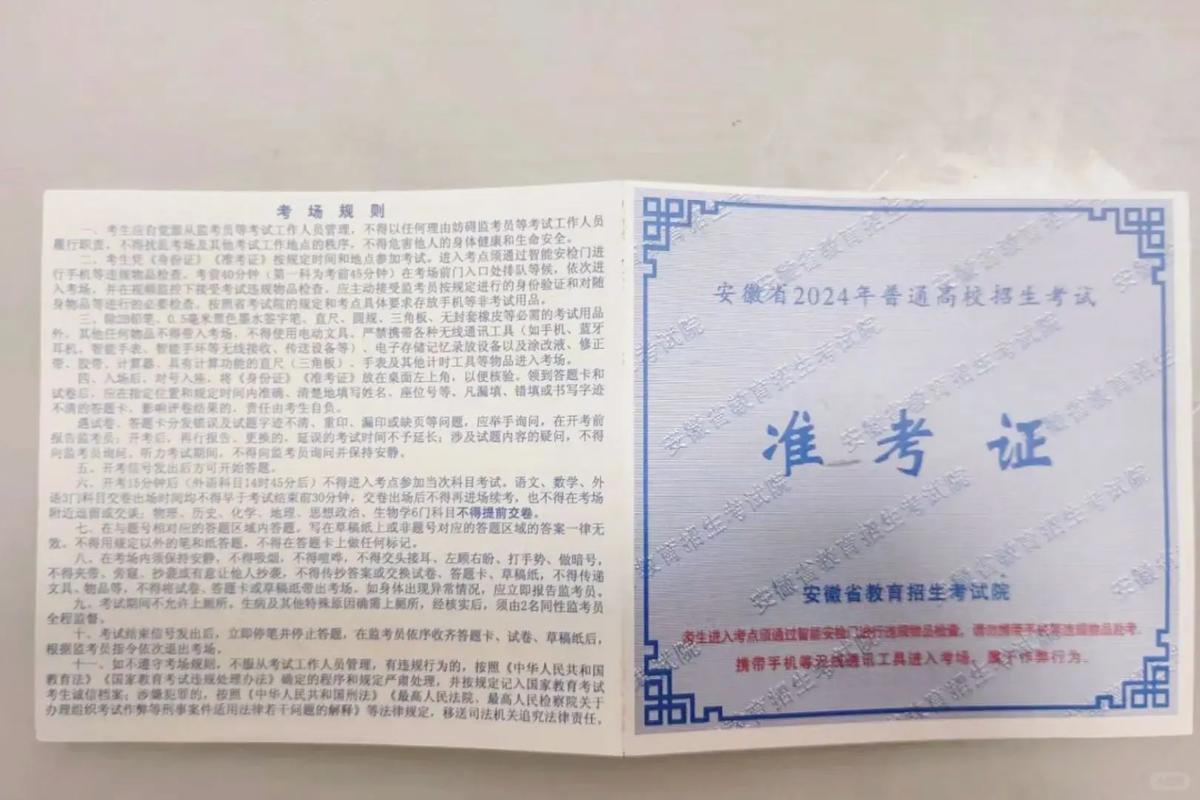 考场规则
一、考生应自觉服从监考员等考试工作人员管理，不得以任何理由妨碍监考员等考试工作人员
履行职责，不得扰乱考场及其他考试工作地点的秩序，不得危害他人的身体健康和生命安全。
二、考生凭《身份证》《准考证》按规定时间和地点参加考试。进入考点须通过智能安检门进
行手机等违规物品检查。考前40分钟（第一科为考前45分钟）在考场前门入口处排队等候，依次进
入考场，并在视频监控下接受考试违规物品检查。应主动接受监考员按规定进行的身份验证和对随
身物品等进行的必要检查。按照省考试院的规定和考点具体要求存放手机等非考试用品。
三、除2B铅笔、0.5毫米黑色墨水签字笔、直尺、圆规、三角板、无封套橡皮等必需的考试用品
外，其他任何物品不得带入考场。不得使用电动文具，严禁携带各种无线通讯工具（如手机、蓝牙
耳机、智能手表、智能手环等无线接收、传送设备等）、电子存储记忆录放设备以及涂改液、修正
带、胶带、计算器、具有计算功能的直尺（三角板）、手表及其他计时工具等物品进入考场。
四、入场后，对号入座，将《身份证》《准考证》放在桌面左上角，以便核验。领到答题卡和
试卷后，应在指定位置和规定时间内准确、清楚地填写姓名、座位号等，凡漏填、错填或书写字迹
不清的答题卡、影响评卷结果的，责任由考生自负。
遇试卷、答题卡分发错误及试题字迹不清、重印、漏印或缺页等问题，应举手询问，在开考前
报告监考员；开考后，再行报告、更换的，延误的考试时间不予延长；涉及试题内容的疑问，不得
向监考员询问。听力考试期间，不得向监考员询问并保持安静。
五、开考信号发出后方可开始答题。
六、开考15分钟后（外语科目14时45分后）不得进入考点参加当次科目考试。语文、数学、外
语3门科目交卷出场时间均不得早于考试结束前30分钟，交卷出场后不得再进场续考，也不得在考场
附近逗留或交谈；物理、历史、化学、地理、思想政治、生物学6门科目不得提前交卷。
七、在与题号相对应的答题区域内答题，写在草稿纸上或非题号对应的答题区域的答案一律无
效。不得用规定以外的笔和纸答题，不得在答题卡上做任何标记。
八、在考场内须保持安静，不得吸烟，不得喧哗，不得交头接耳、左顾右盼、打手势、做暗号，
不得夹带、旁窥、抄袭或有意让他人抄袭，不得传抄答案或交换试卷、答题卡、草稿纸，不得传递
文具、物品等，不得将试卷、答题卡或草稿纸带出考场。如身体出现异常情况，应立即报告监考员。
九、考试期间不允许上厕所。生病及其他特殊原因确需上厕所，经核实后，须由2名同性监考员
全程监督。
十、考试结束信号发出后，立即停笔并停止答题，在监考员依序收齐答题卡、试卷、草稿纸后，
根据监考员指令依次退出考场。
十一、如不遵守考场规则，不服从考试工作人员管理，有违规行为的，按照《中华人民共和国
教育法》《国家教育考试违规处理办法》确定的程序和规定严肃处理，并按规定记入国家教育考试
考生诚信档案；涉嫌犯罪的，按照《中华人民共和国刑法》《最高人民法院、最高人民检察院关于
办理组织考试作弊等刑事案件适用法律若干问题的解释》等法律规定，移送司法机关追究法律责任。
安徽省2024年普通高校招生考试
准考证
安徽省教育招生考试院
考生进入考点须通过智能安检门进行违规物品检查，请勿携带手机等违规物品赴考。
携带手机等无线通讯工具进入考场，属于作弊行为。
安徽省教育招生考试院
安徽省教育招生考试院
安徽省教育招生考试院